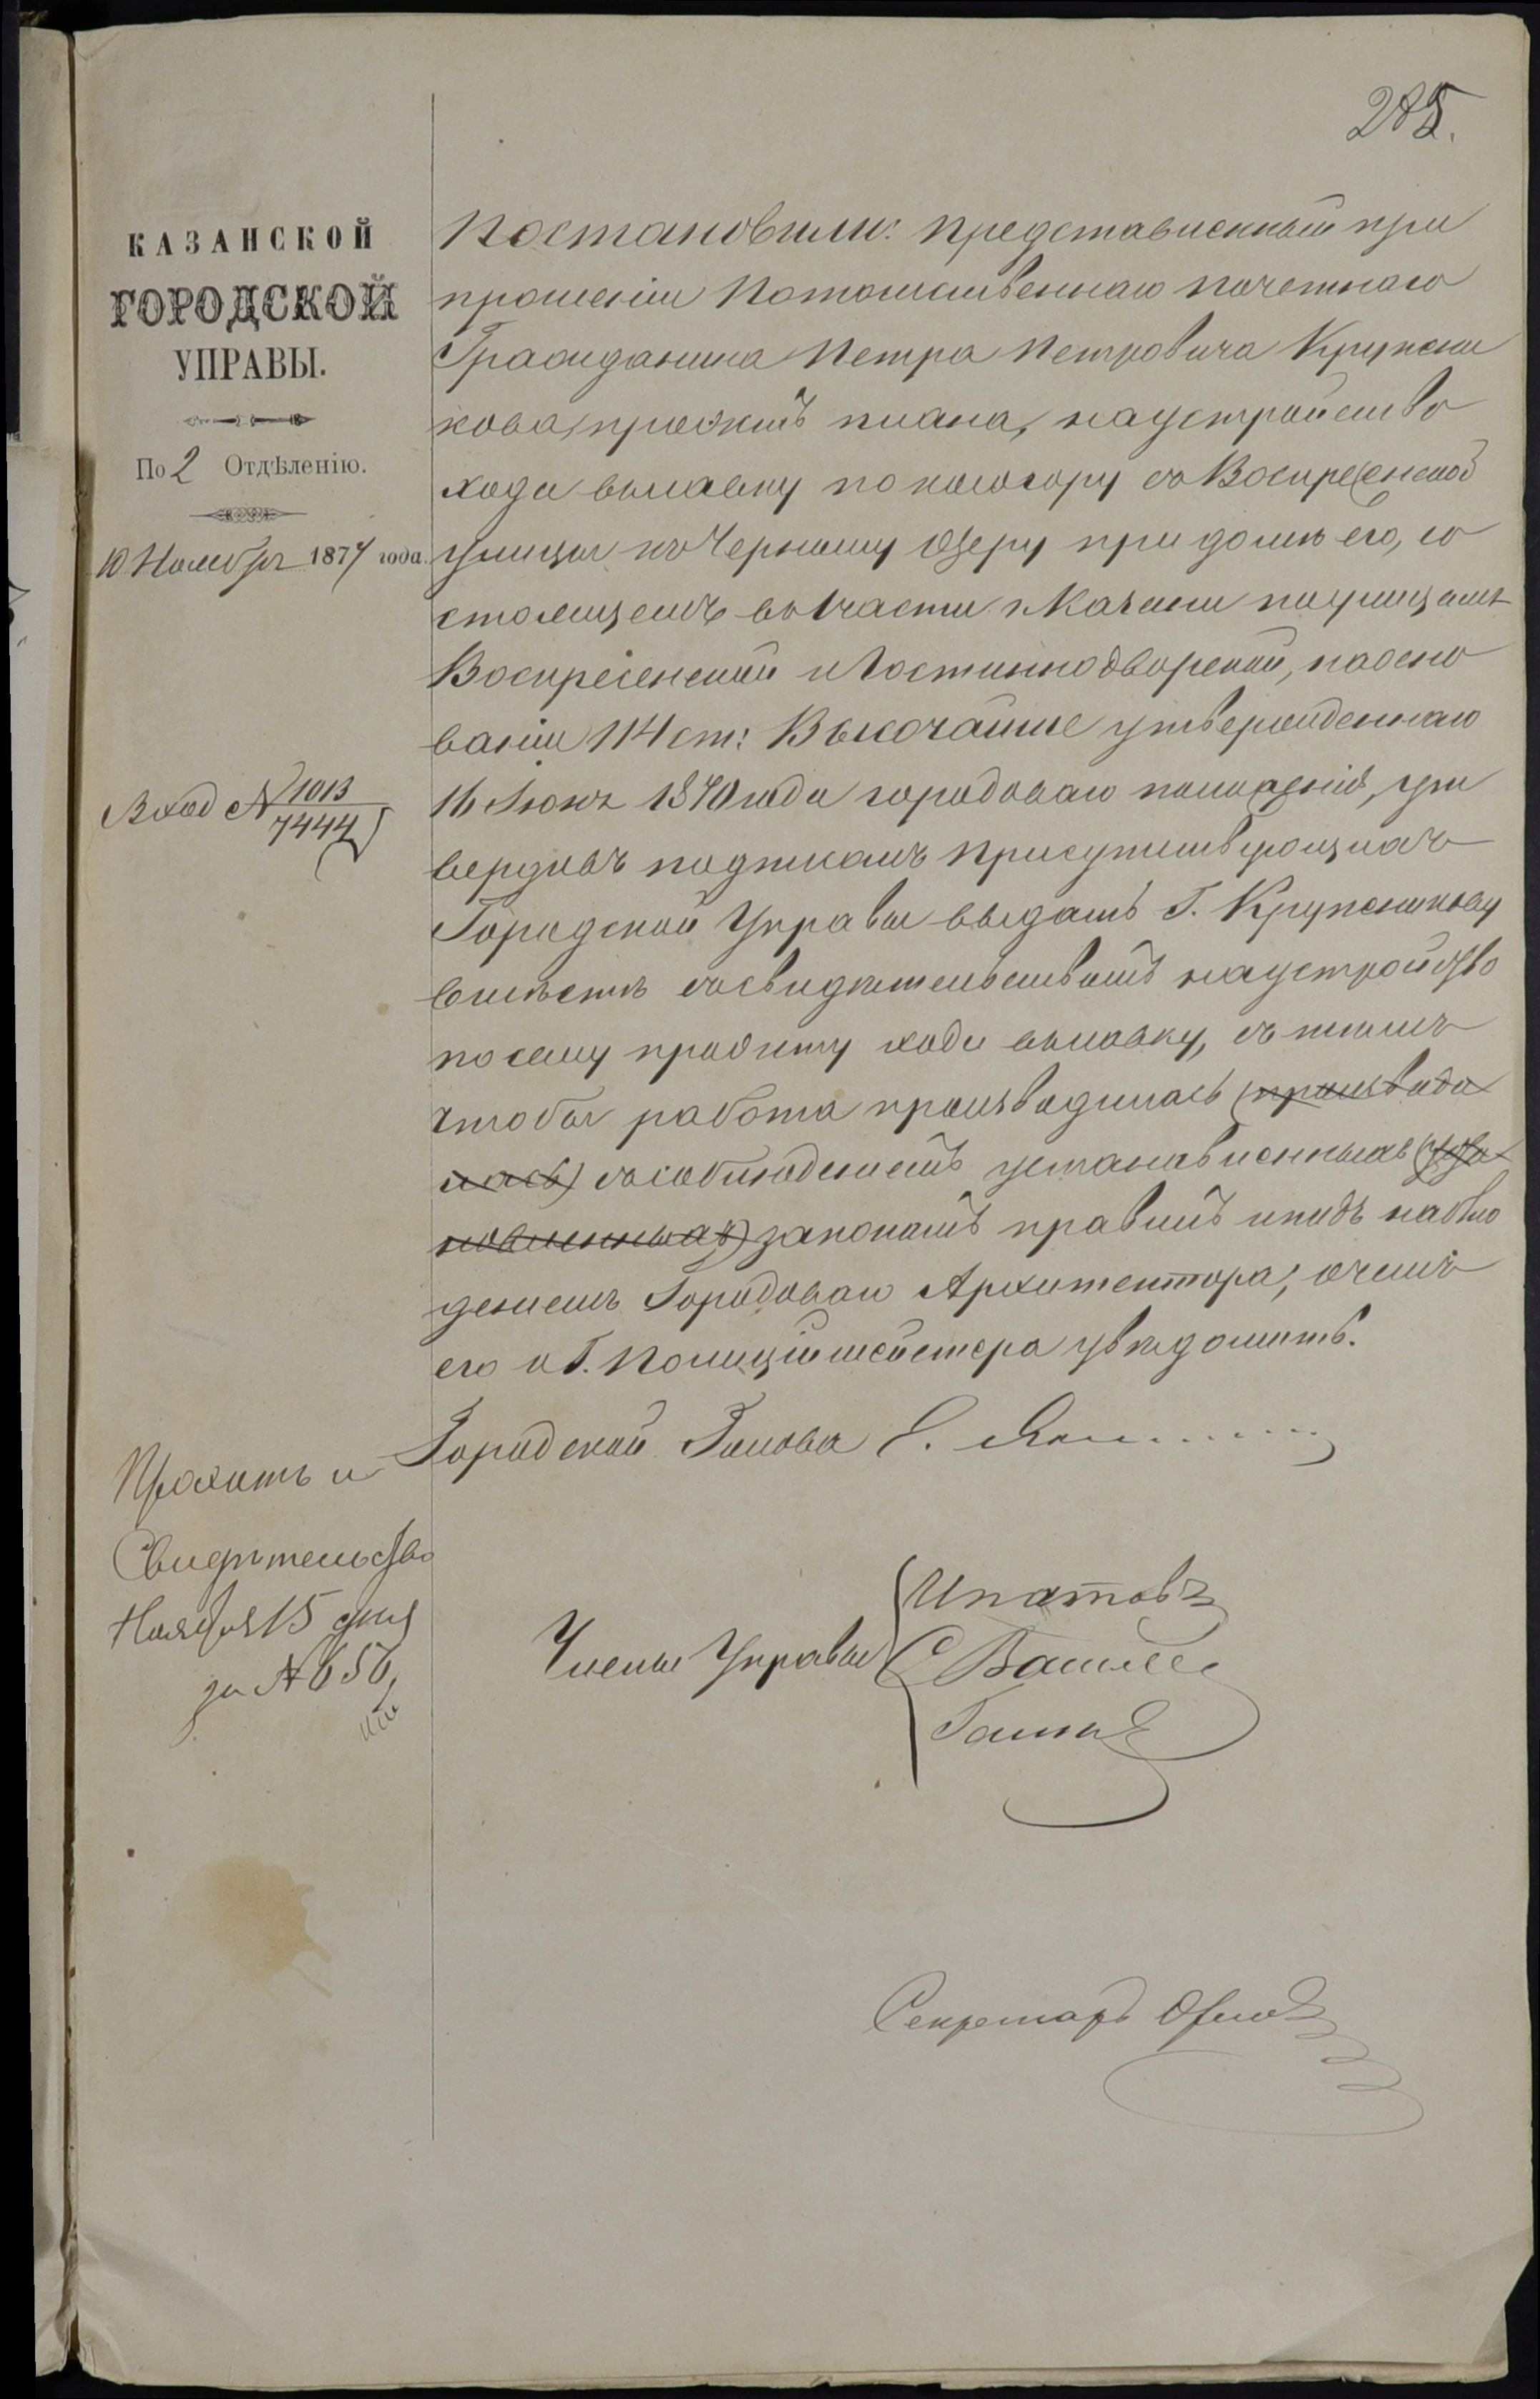 285.
КАЗАНСКОЙ
ГОРОДСКОЙ
УПРАВЫ.
По 2 Отдѣленію.
10 Ноября 1877 года.
Вход № 1013
7444
Постановили: представленный при
прошеніи Потомственнаго почетнаго
Гражданина Петра Петровича Крупени
кова, проэктъ плана, на устройство
хода въ лавку по косогору съ Воскресенской
улицы къ Черному Озеру при домѣ его, со
стоящемъ въ 1 части г. Казани по улицамъ
Воскресенской и Гостиннодворской, на осно
ваніи 114 ст: Высочайше утвержденнаго
16 Іюня 1870 года городоваго положенія, ут
вердивъ подписомъ Присутствующихъ
Городской Управы выдать Г. Крупеникову
вмѣстѣ съ свидѣтельствомъ на устройство
по сему проэкту хода въ лавку, съ тѣмъ
чтобы работа производилась (производи
лась) съ соблюденіемъ установленныхъ (уста
новленныхъ) закономъ правилъ и подъ наблю
деніемъ Городоваго Архитектора, о чемъ
его и Г. Полиціймейстера увѣдомить.
Городской Голова Е.
Проэктъ и
Свидѣтельство
Ноября 15 дня
за № 656,
Члены Управы
Ипатовъ
С
Секретарь Орловъ